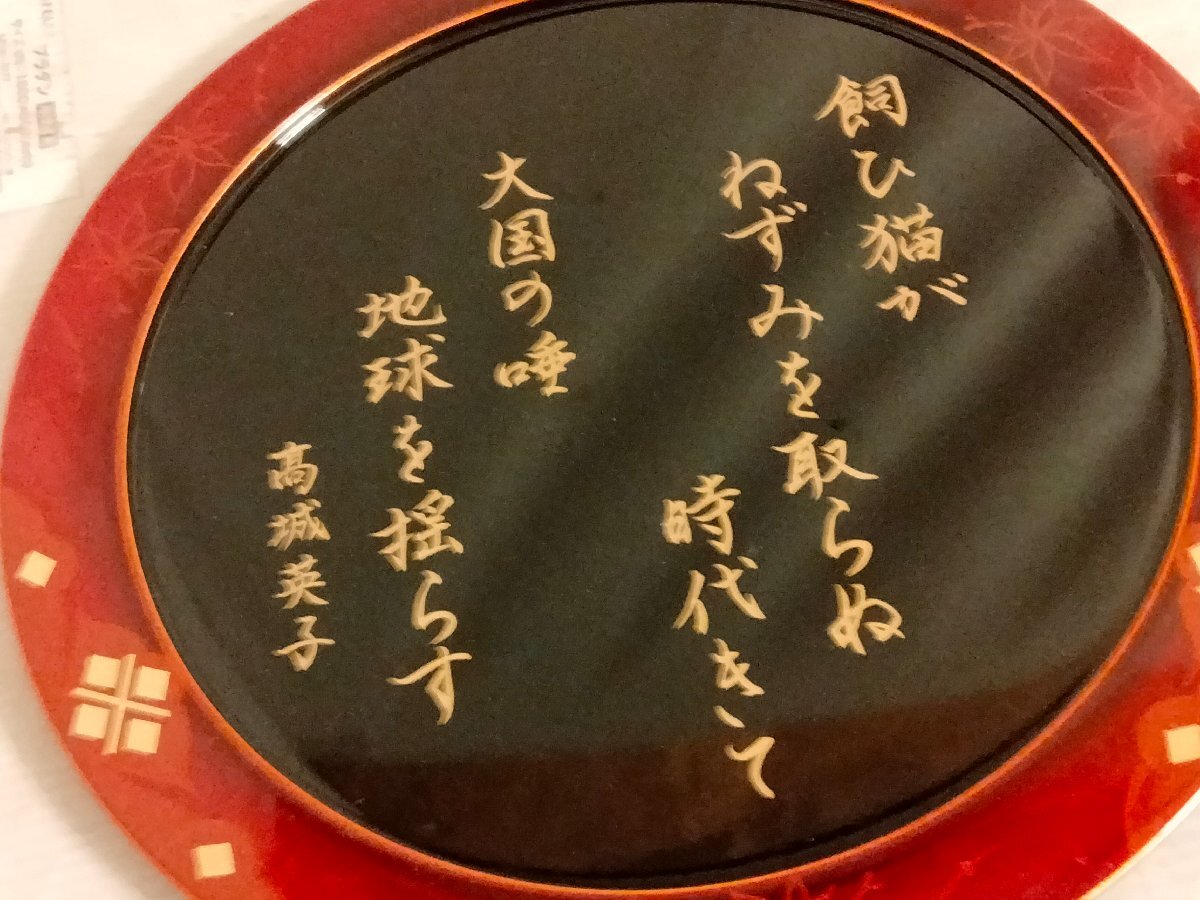 飼ひ猫が
ねずみを取らぬ
時代きて
大国の唾
地球を揺らす
高城英子